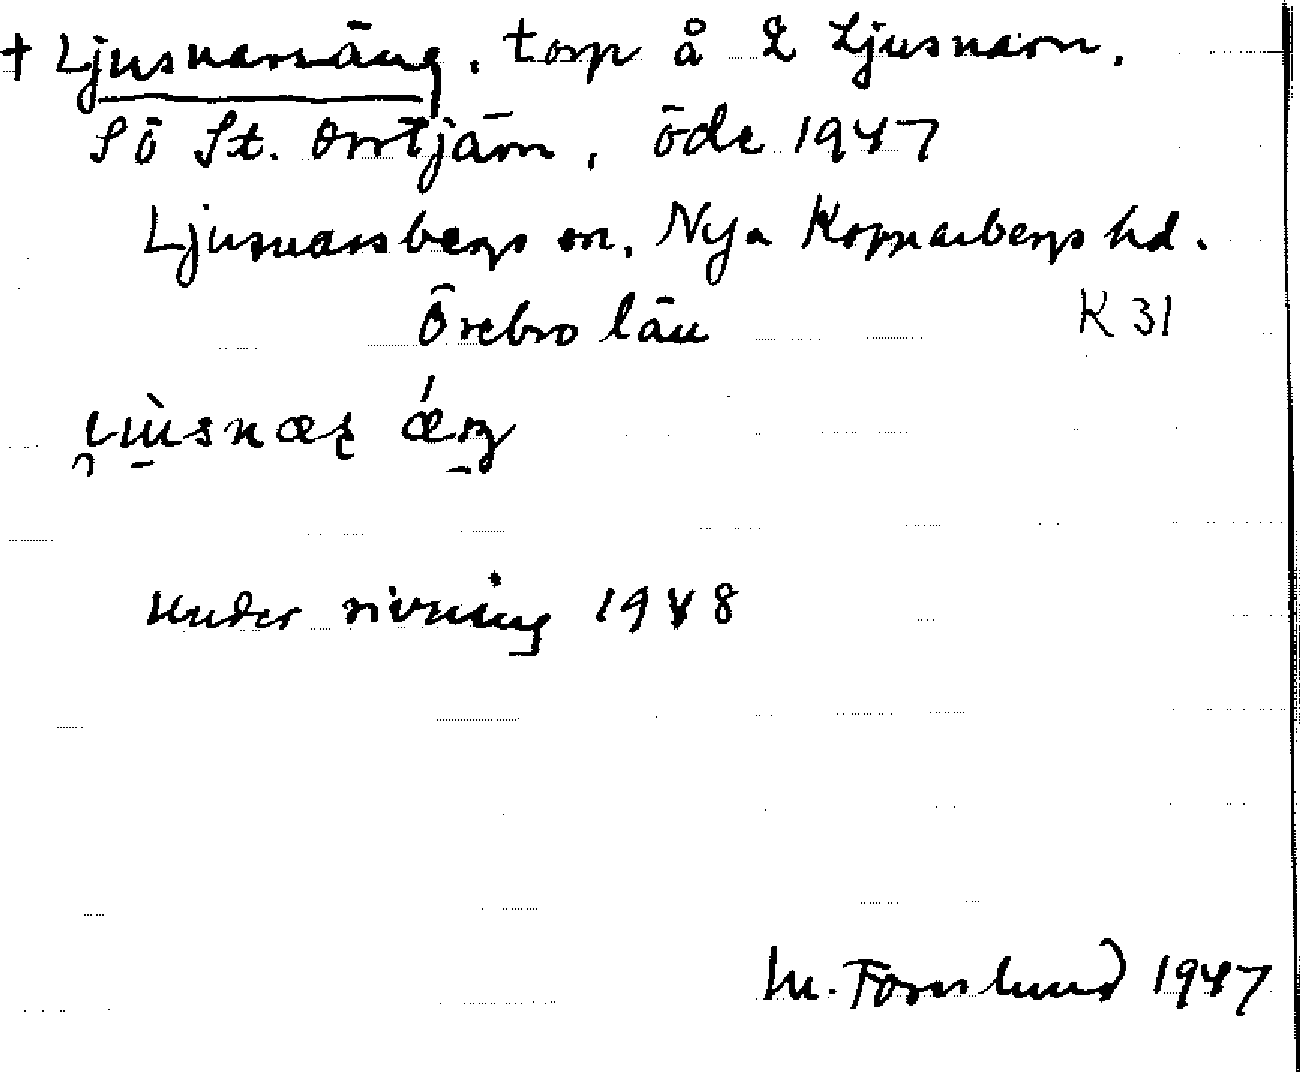 † Ljusnarsäng, torp å 2 Ljusnarn.
SÖ St. Orrtjärn, öde 1947
Ljusnarsbergs sn, Nya Kopparbergs hd.
Örebro län K 31
Under rivning 1948
M. Fornslund 1947